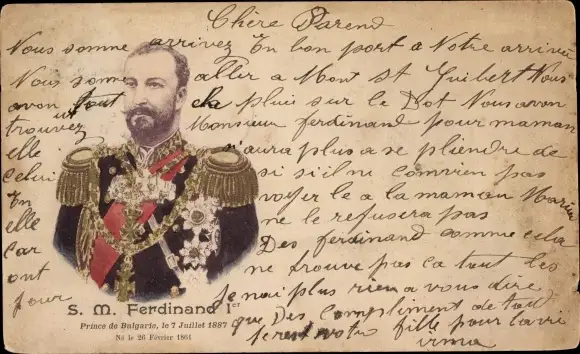 Chère Parend
Nous somne arrivez En bon port a Notre arrivée
Nous somne aller a Mont St Guibert Nous
avon tout la pluis sur le Dot Nous avon
trouvez Monsieur ferdinand pour maman
elle n'aura plus a se plendre de
celui si s'il ni convien pas
En voyer le a la maman
elle ne le refusera pas
Car Des ferdinand somme cela
ont ne trouve pas ca tout les
jour Je nai plus rien a vous dire
que Des compliment de tout
votre fille pour la vie
irma
S. M. Ferdinand Ier
Prince de Bulgarie, le 7 Juillet 1887
Né le 26 Février 1861